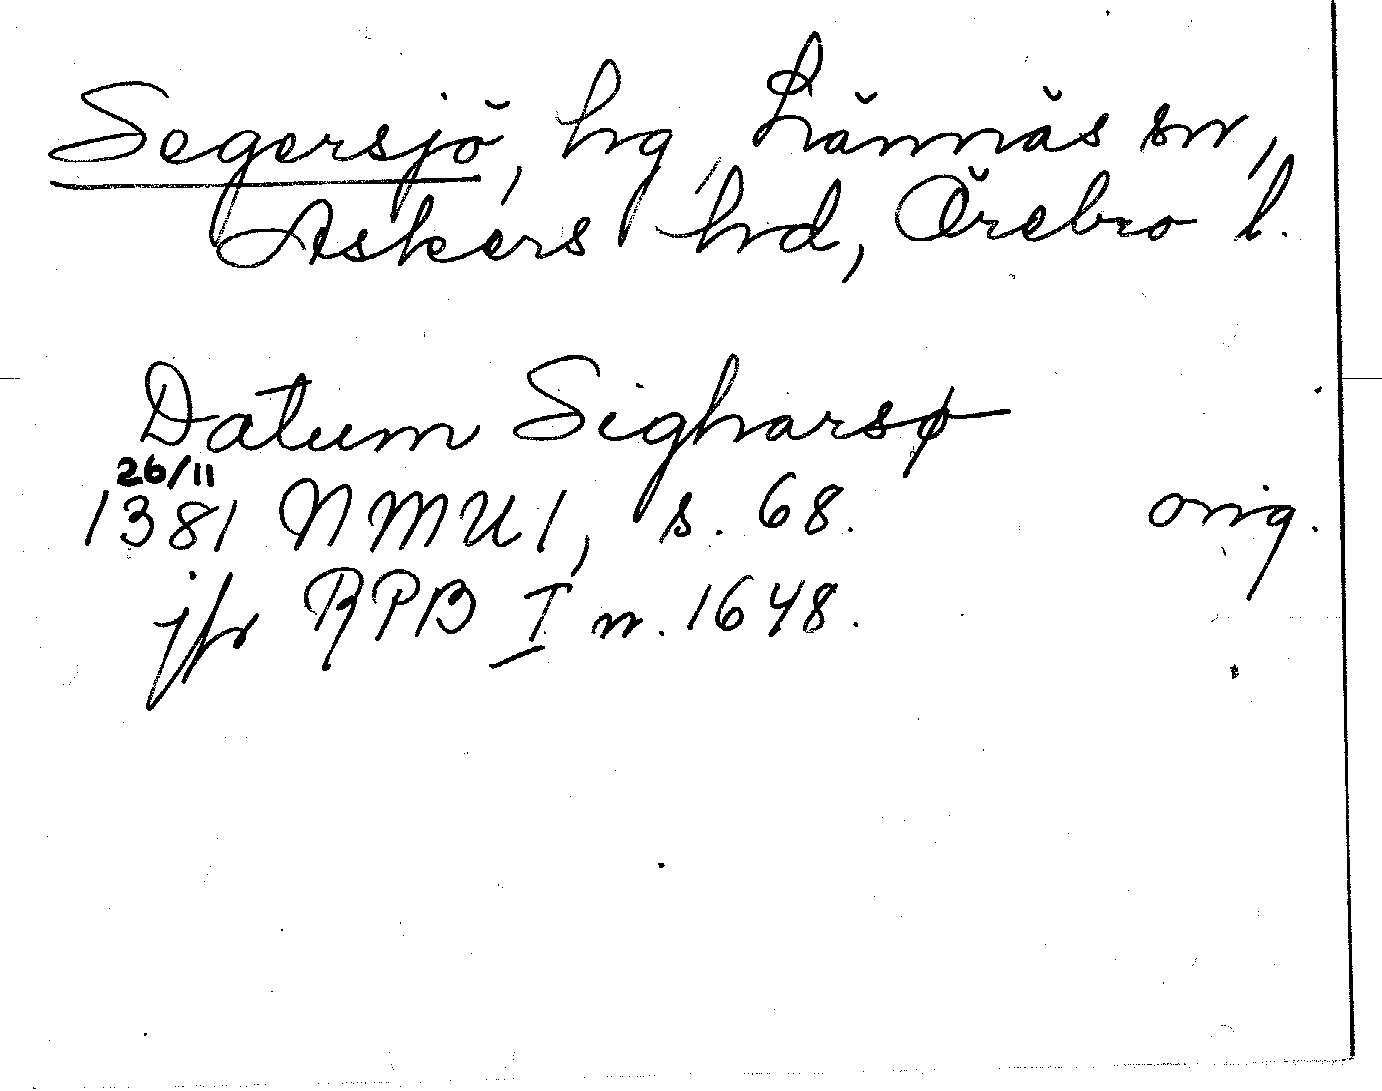 Segersjö, hg, Lännäs sn,
Askers hd, Örebro l.
Datum Sigharsø
26/11
1381 NMU 1, s. 68. orig.
jfr RPB I n. 1648.